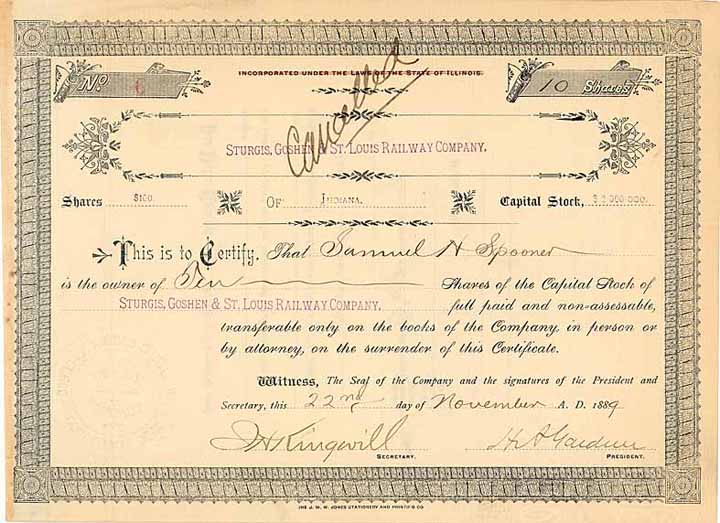 INCORPORATED UNDER THE LAWS OF THE STATE OF ILLINOIS.
No. 6
10 Shares
Cancelled
STURGIS, GOSHEN & ST. LOUIS RAILWAY COMPANY.
Shares $100. OF INDIANA. Capital Stock, $2,000,000.
This is to Certify, That Samuel H Spooner
is the owner of Ten Shares of the Capital Stock of
STURGIS, GOSHEN & ST. LOUIS RAILWAY COMPANY. full paid and non-assessable,
transferable only on the books of the Company, in person or
by attorney, on the surrender of this Certificate.
Witness, The Seal of the Company and the signatures of the President and
Secretary, this 22nd day of November A. D. 1889
Kingwill
SECRETARY.
PRESIDENT.
THE J. M. W. JONES STATIONERY AND PRINT'G CO